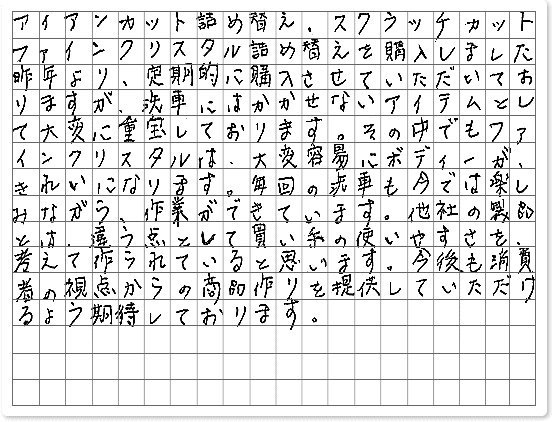 アイアンカット詰め替え、スクラッチカット
ファインクリスタル詰め替えを購入しました
昨年より、定期的に購入させていただいてお
りますが、洗車にはかかせないアイテムとし
て大変に重宝しております。その中でもファ
インクリスタルは、大変容易にボディーが、
きれいになります。毎回の洗車も今では楽し
みながら、作業ができています。他社の製品
とは、違う点として買い手の使いやすさを、
考えて作られていると思います。今後も消費
者の視点からの商品作りを提供していただけ
るよう期待しております。